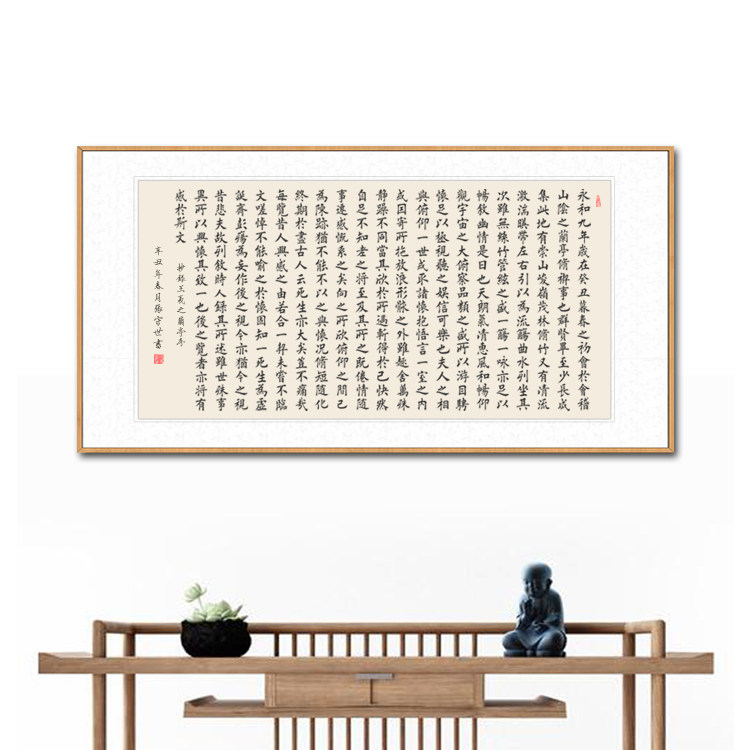 永和九年歲在癸丑暮春之初會於會稽
山陰之蘭亭脩禊事也群賢畢至少長咸
集此地有崇山峻嶺茂林脩竹又有清流
激湍暎帶左右引以為流觴曲水列坐其
次雖無絲竹管絃之盛一觴一咏亦足以
暢敘幽情是日也天朗氣清惠風和暢仰
觀宇宙之大俯察品類之盛所以遊目騁
懷足以極視聽之娛信可樂也夫人之相
與俯仰一世或取諸懷抱悟言一室之內
或因寄所託放浪形骸之外雖趣舍萬殊
靜躁不同當其欣於所遇暫得於己快然
自足不知老之將至及其所之既倦情隨
事遷感慨係之矣向之所欣俯仰之間已
為陳跡猶不能不以之興懷況脩短隨化
終期於盡古人云死生亦大矣豈不痛哉
每覽昔人興感之由若合一契未嘗不臨
文嗟悼不能喻之於懷固知一死生為虛
誕齊彭殤為妄作後之視今亦猶今之視
昔悲夫故列敘時人錄其所述雖世殊事
異所以興懷其致一也後之覽者亦將有
感於斯文
抄錄王羲之蘭亭序
辛丑年春月張守世書